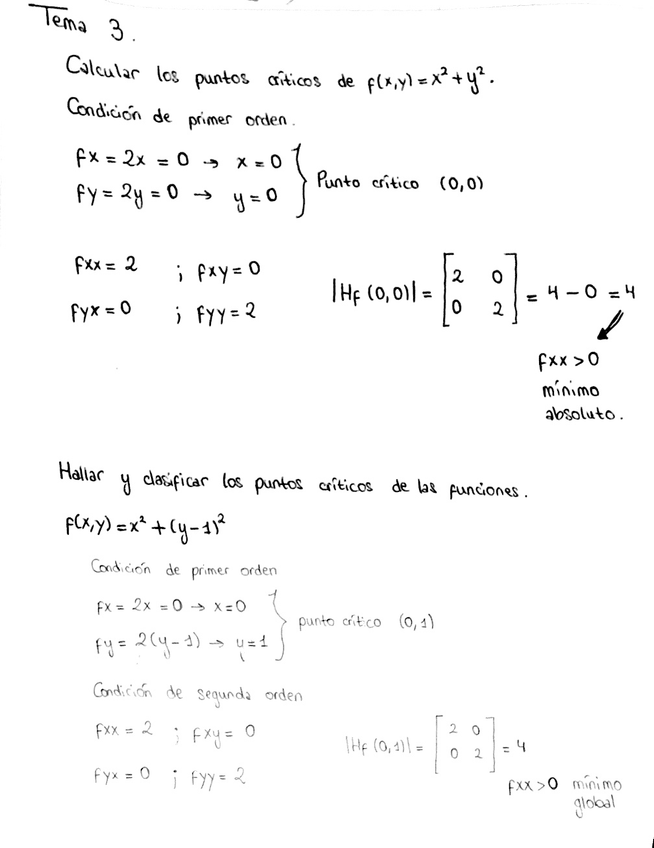 Tema 3.
Calcular los puntos críticos de f(x,y)=x²+y².
Condición de primer orden.
fx = 2x = 0 → x=0
fy = 2y = 0 → y=0 } Punto crítico (0,0)
fxx = 2 ; fxy=0
fyx=0 ; fyy=2
|Hf (0,0)| = [2 0
0 2] = 4-0 = 4
fxx>0
mínimo
absoluto.
Hallar y clasificar los puntos críticos de las funciones.
f(x,y)=x²+(y-1)²
Condición de primer orden
fx = 2x = 0 → x=0
fy = 2(y-1) → y=1 } punto crítico (0,1)
Condición de segunda orden
fxx = 2 ; fxy = 0
fyx = 0 ; fyy = 2
|Hf (0,1)| = [2 0
0 2] = 4
fxx>0 mínimo
global